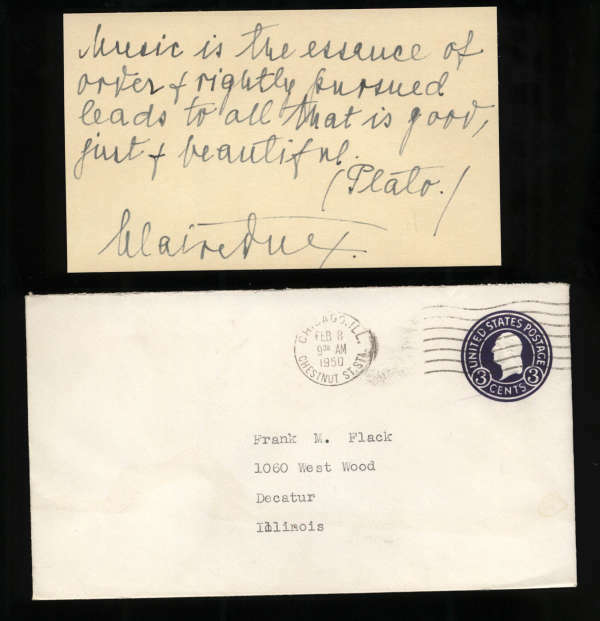 Music is the essence of
order & rightly pursued
leads to all that is good,
just & beautiful.
(Plato.)
Claire Dux.
CHICAGO, ILL.
FEB 8
9 30 AM
1950
CHESTNUT ST. STA.
UNITED STATES POSTAGE
3 CENTS 3
Frank M. Flack
1060 West Wood
Decatur
Illinois